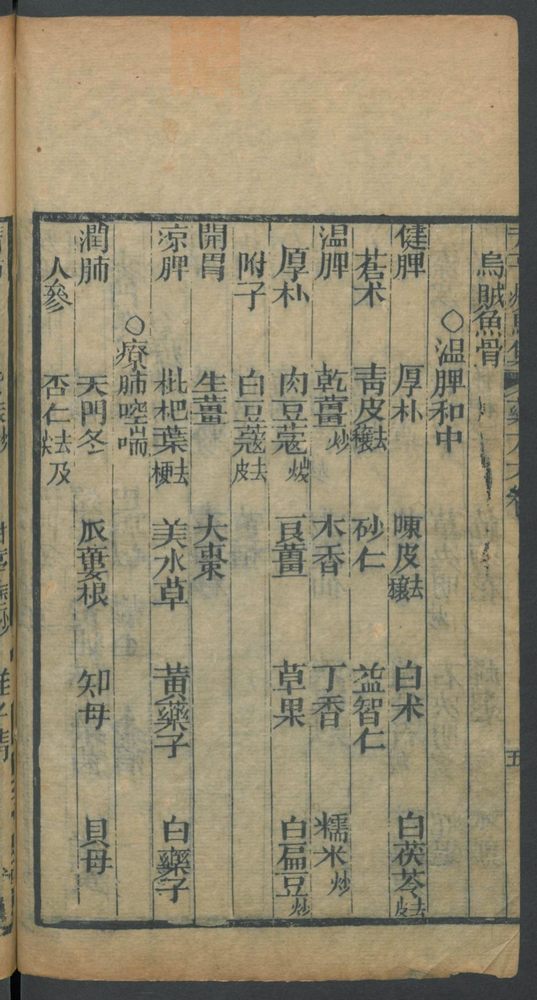 烏賊魚骨
○溫脾和中
健脾 厚朴 陳皮去穰 白朮 白茯苓去皮
蒼朮 青皮去穰 砂仁 益智仁
溫脾 乾薑炒 木香 丁香 糯米炒
厚朴 肉豆蔻煨 良薑 草果 白扁豆炒
附子 白豆蔻去皮
開胃 生薑 大棗
涼脾 枇杷葉去梗 美水草 黃藥子 白藥子
○療肺啌喘
潤肺 天門冬 瓜蔞根 知母 貝母
人參 杏仁去及尖
五